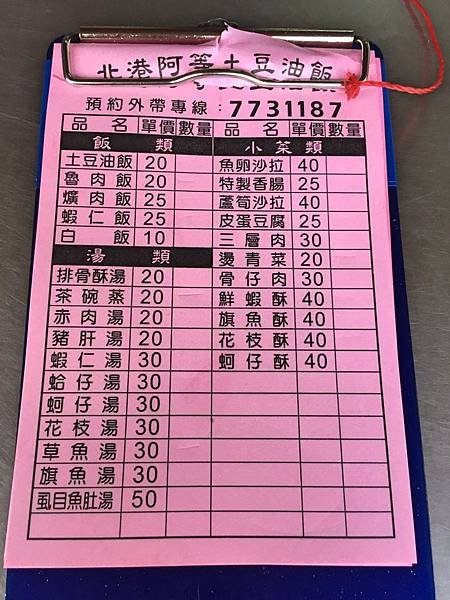 北港阿等土豆油飯
預約外帶專線：7731187
品名 單價 數量 品名 單價 數量
飯類 小菜類
土豆油飯 20 魚卵沙拉 40
魯肉飯 20 特製香腸 25
爌肉飯 25 蘆筍沙拉 40
蝦仁飯 25 皮蛋豆腐 25
白飯 10 三層肉 30
湯類 燙青菜 20
排骨酥湯 20 骨仔肉 30
茶碗蒸 20 鮮蝦酥 40
赤肉湯 20 旗魚酥 40
豬肝湯 20 花枝酥 40
蝦仁湯 30 蚵仔酥 40
蛤仔湯 30
蚵仔湯 30
花枝湯 30
草魚湯 30
旗魚湯 30
虱目魚肚湯 50